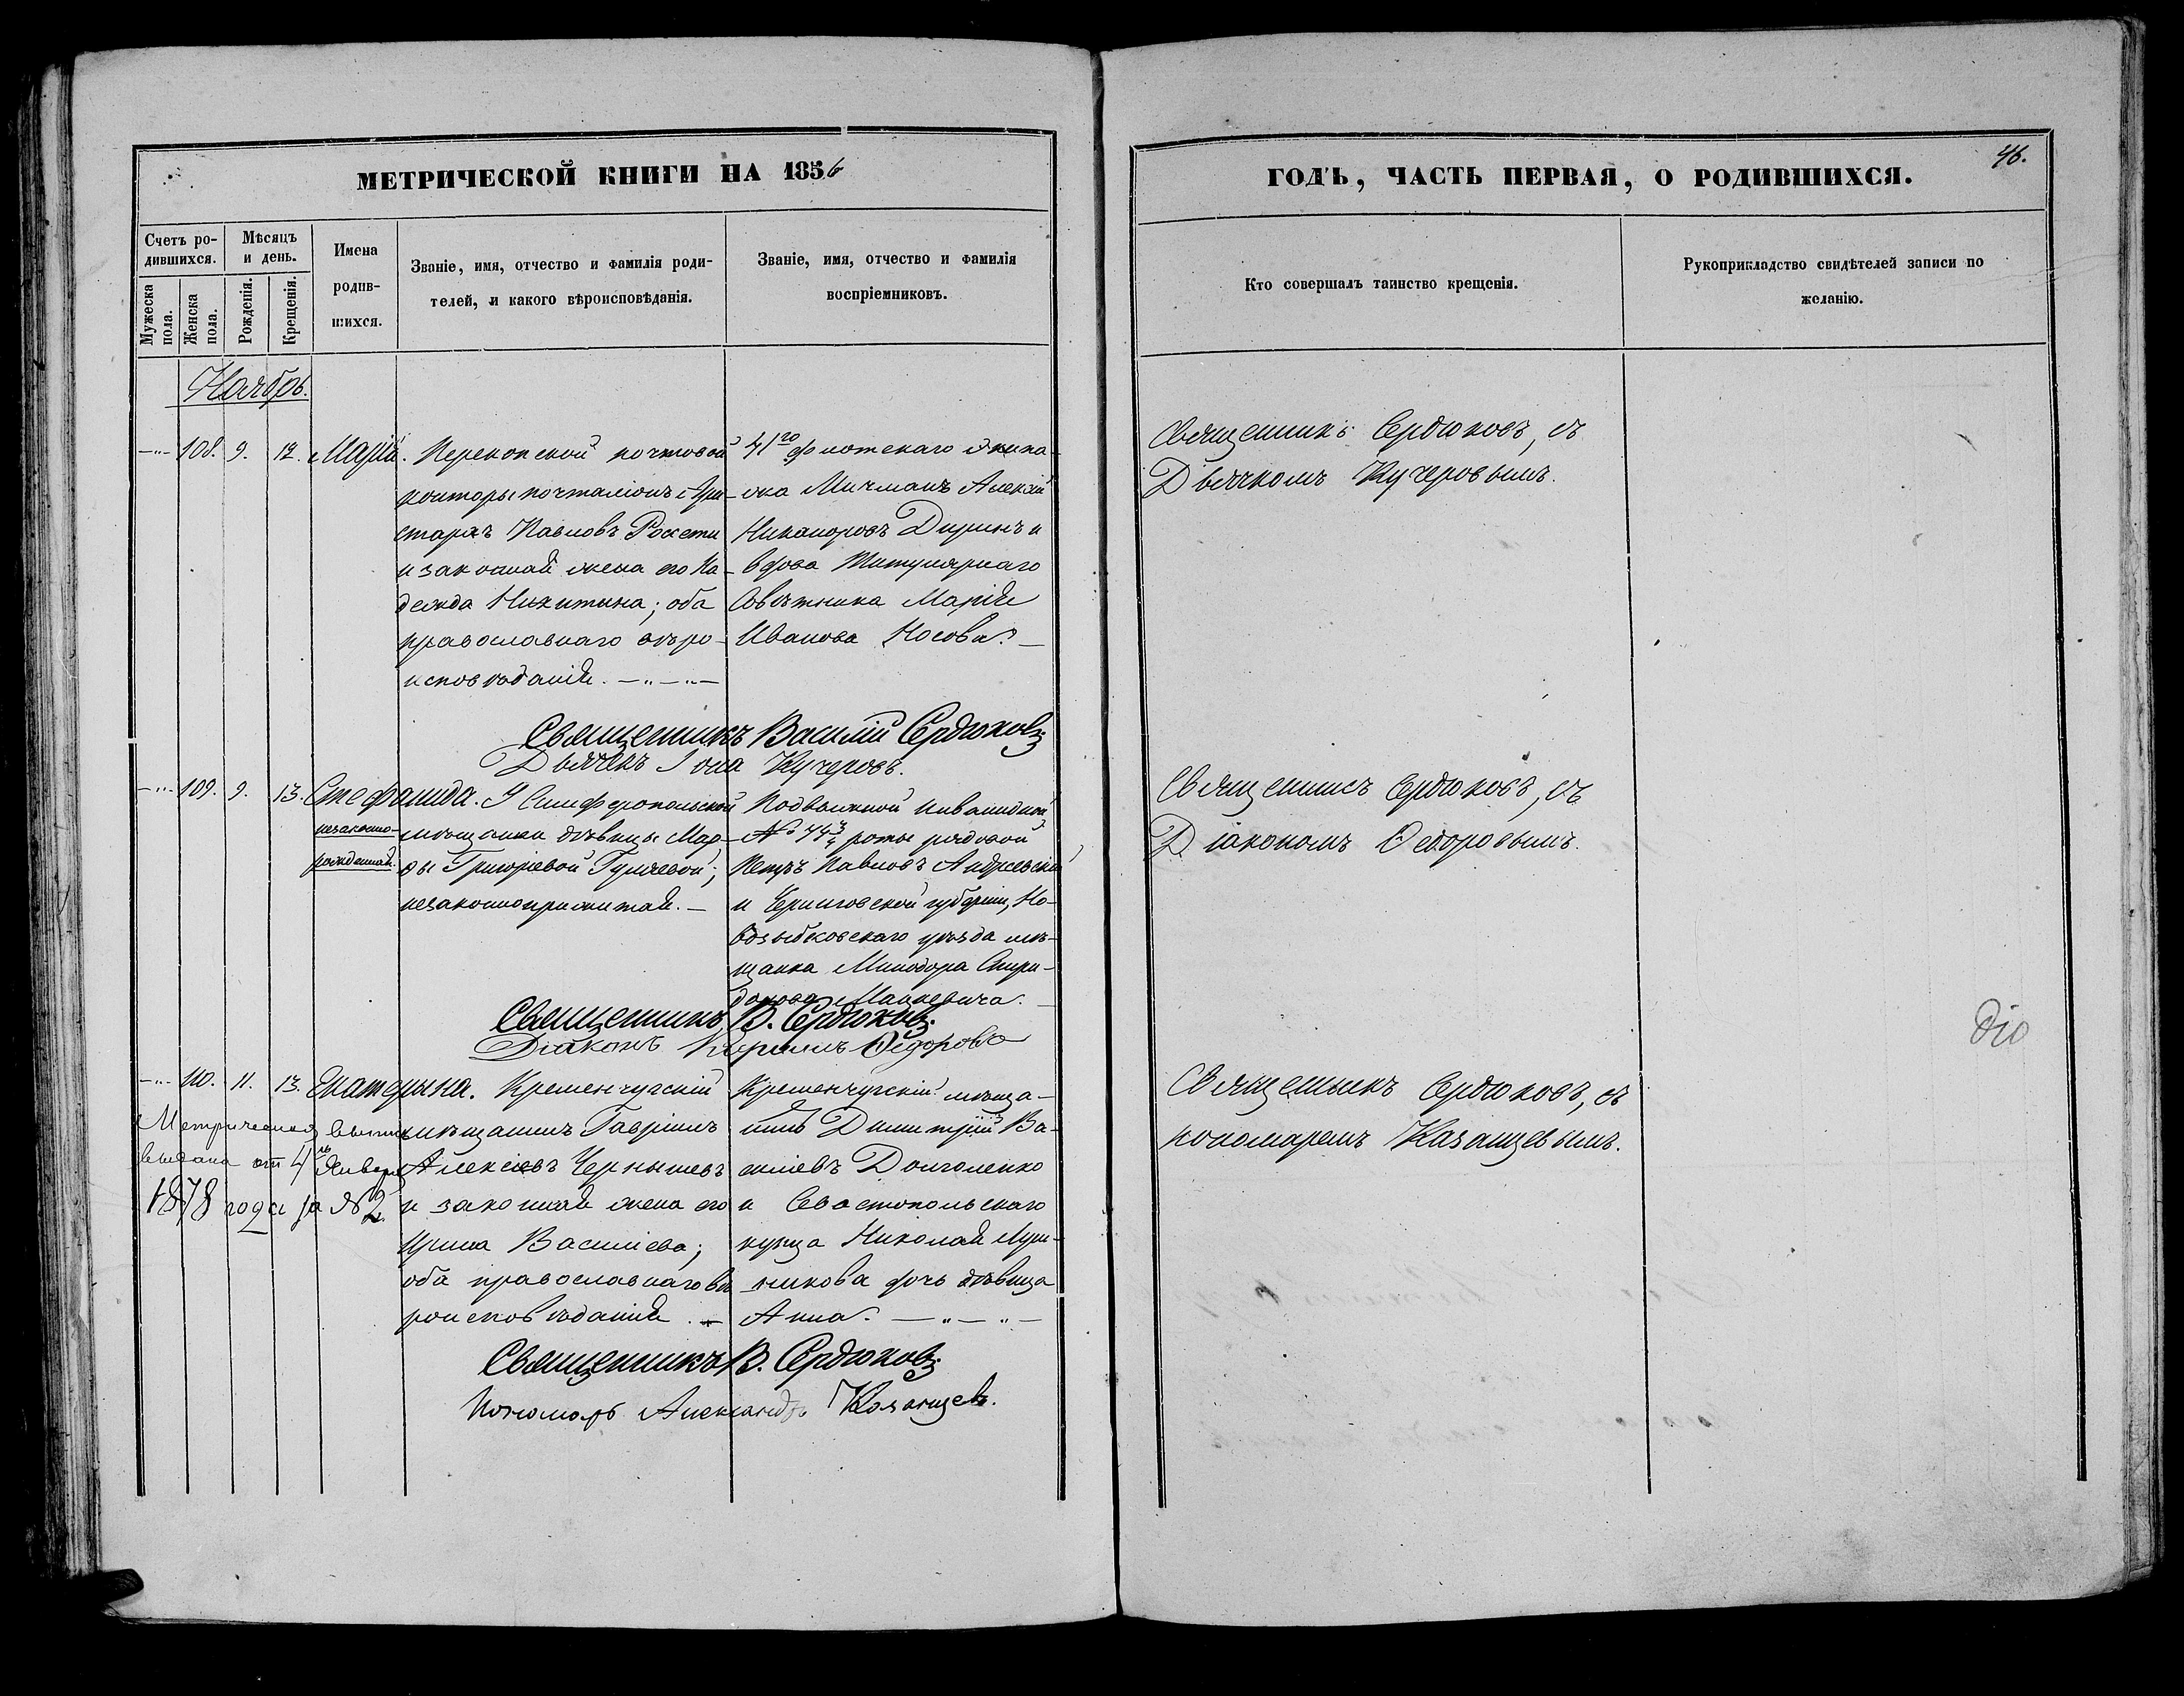 МЕТРИЧЕСКОЙ КНИГИ НА 1856
ГОДЪ, ЧАСТЬ ПЕРВАЯ, О РОДИВШИХСЯ.
46.
Счетъ ро-
дившихся.
Мѣсяцъ
и день.
Мужеска
пола.
Женска
пола.
Рожденія.
Крещенія.
Имена
родив-
шихся.
Званіе, имя, отчество и фамилія роди-
телей, и какого вѣроисповѣданія.
Званіе, имя, отчество и фамилія
воспріемниковъ.
Кто совершалъ таинство крещенія.
Рукоприкладство свидѣтелей записи по
желанію.
Ноябрь.
108. 9. 12. Марія.
Перекопской почтовой
конторы почталіонъ Ари-
стархъ Павловъ
и законная жена его На-
дежда Никитина; оба
православнаго вѣро-
исповѣданія.
41го флотскаго экипа-
жа Мичманъ Алексѣй
Никаноровъ Диринъ и
вдова Титулярнаго
Совѣтника Марія
Иванова Носова.
Священникъ Сердюковъ, съ
Дьячкомъ Кучеровымъ.
Священникъ Василій Сердюковъ
Дьячекъ Іона Кучеровъ.
109. 9. 13. Стефанида.
незаконно-
рожденная.
Симферопольской
мѣщанки дѣвицы Мар-
ѳы Григорьевой
незаконноприжитая.
Подвижной инвалидной
роты рядовой
Петръ Павловъ Андреевскій
и Черниговской губерніи, Но-
возыбковскаго уѣзда мѣ-
щанка Минодора Спири-
донова
Священникъ Сердюковъ, съ
Діакономъ Ѳедоровымъ.
Священникъ В. Сердюковъ.
Діаконъ Кириллъ Ѳедоровъ
110. 11. 13. Екатерина.
Кременчугскій
мѣщанинъ Гавріилъ
Алексѣевъ Чернышевъ
и законная жена его
Ирина Васильева;
оба православнаго вѣ-
роисповѣданія.
Кременчугскій мѣща-
нинъ Димитрій Ва-
сильевъ Долголенко
и Севастопольскаго
купца Николая
дочь дѣвица
Анна.
Метрическая
выдана от 4 Января
1878 года за № 2.
Священникъ Сердюковъ, съ
пономаремъ Казанцевымъ.
Священникъ В. Сердюковъ.
Пономарь Александръ Казанцевъ.